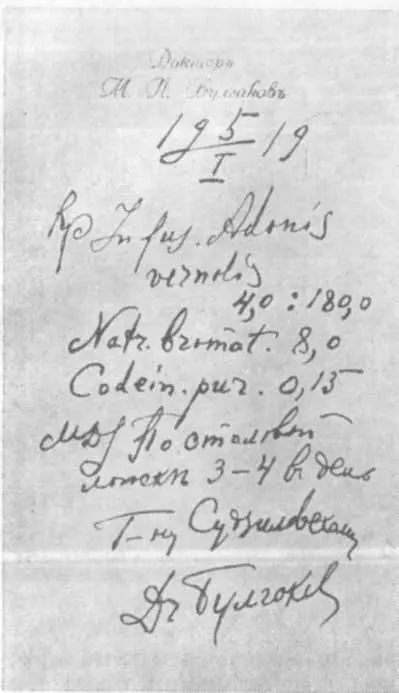 Докторъ
М. А. Булгаковъ
19 5/I 19
Rp Infus. Adonis
vernalis
4,0 : 180,0
Natr. bromat. 8,0
Codein. pur. 0,15
MDS По столовой
ложкѣ 3–4 в день
Г-ну Судзиловскому
Dr Булгаков